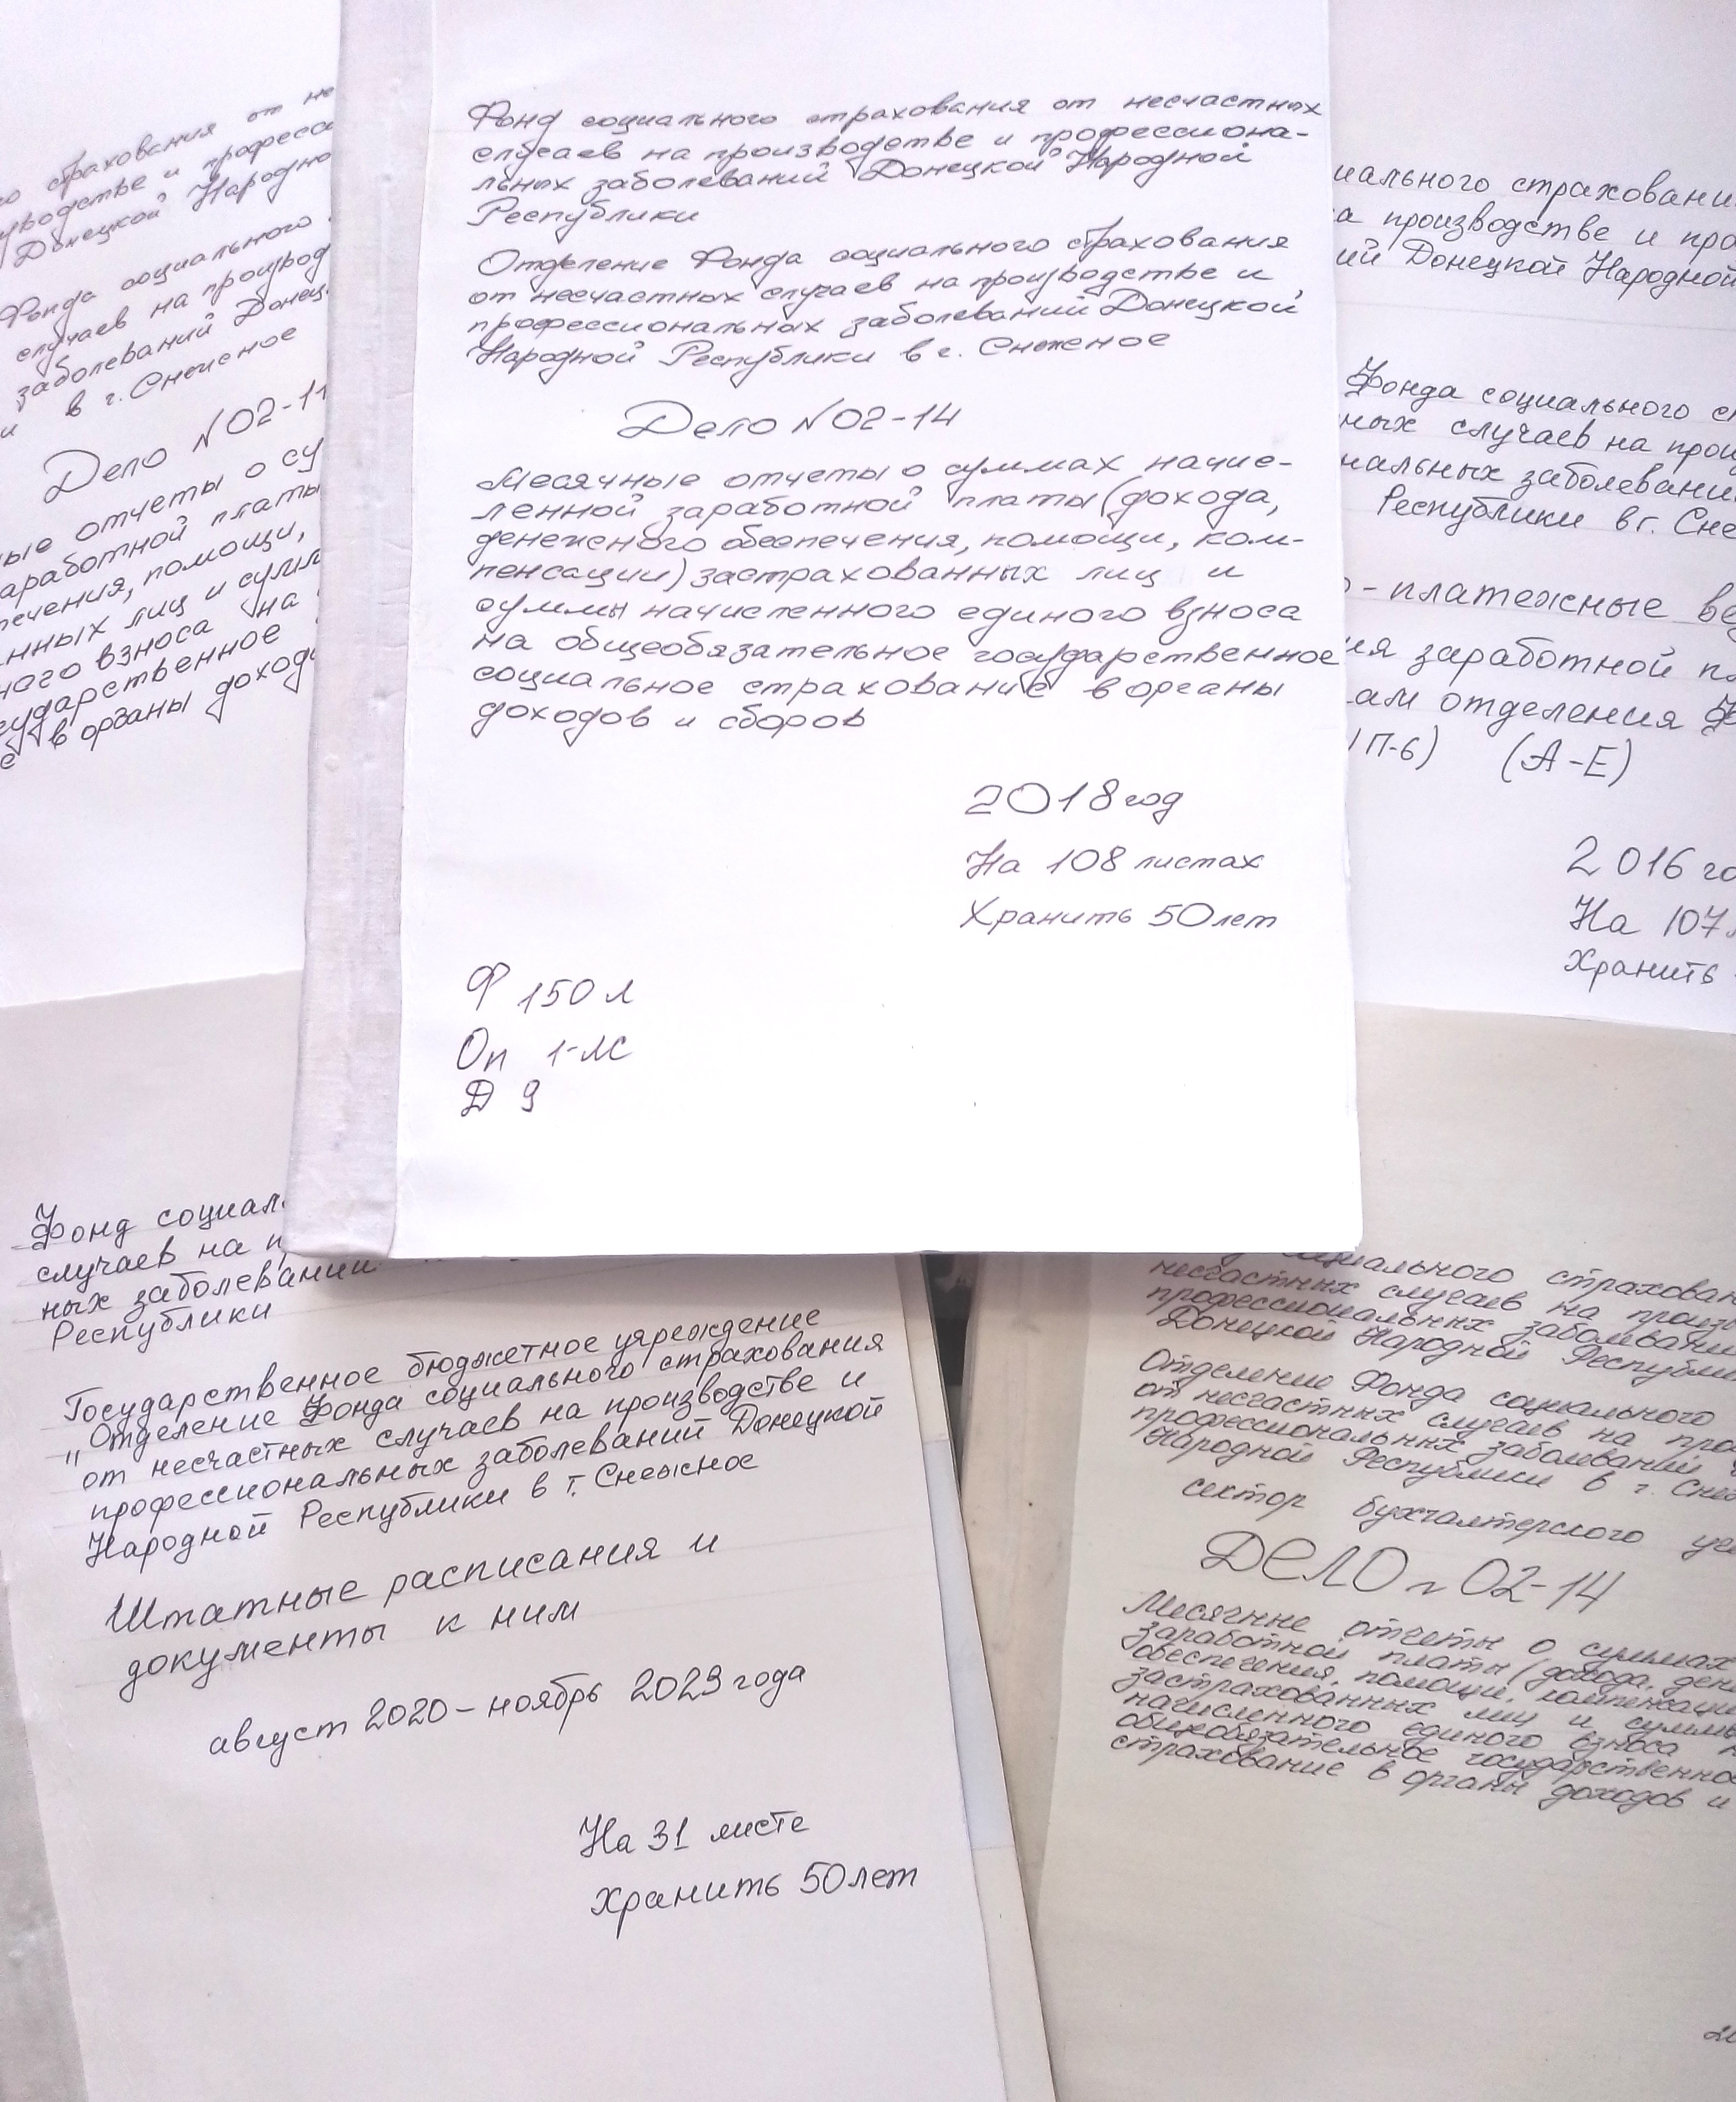 Фонд социального страхования от несчастных
случаев на производстве и профессиона-
льных заболеваний Донецкой Народной
Республики
Отделение Фонда социального страхования
от несчастных случаев на производстве и
профессиональных заболеваний Донецкой
Народной Республики в г. Снежное
Дело №02-14
Месячные отчеты о суммах начис-
ленной заработной платы (дохода,
денежного обеспечения, помощи, ком-
пенсации) застрахованных лиц и
суммы начисленного единого взноса
на общеобязательное государственное
социальное страхование в органы
доходов и сборов
2018 год
На 108 листах
Хранить 50 лет
Ф 150 л
Оп 1-ЛС
Д 9
страхования от не
водстве и професс
Донецкой Народно
Фонда социального
случаев на производ
заболеваний Донец
и в г. Снежное
Дело №02-1
ные отчеты о су
аработной платы
печения, помощи,
нных лиц и сумм
ного взноса на
сударственное
е в органы доход
иального страховани
а производстве и про
ий Донецкой Народной
Фонда социального ст
ных случаев на прои
нальных заболевани
Республики в г. Сне
о-платежные ве
ия заработной пл
ам отделения Ф
П-6) (А-Е)
2016 го
На 107 л
Хранить
Фонд социал
случаев на п
ных заболеваний
Республики
Государственное бюджетное учреждение
"Отделение Фонда социального страхования
от несчастных случаев на производстве и
профессиональных заболеваний Донецкой
Народной Республики в г. Снежное
Штатные расписания и
документы к ним
август 2020 - ноябрь 2023 года
На 31 листе
Хранить 50 лет
социального страхован
несчастных случаев на произв
профессиональных заболевани
Донецкой Народной Республи
Отделение Фонда социального
от несчастных случаев на про
профессиональных заболеваний
Народной Республики в г. Снеж
сектор бухгалтерского уч
ДЕЛО № 02-14
Месячные отчеты о суммах
заработной платы (дохода, ден
обеспечения, помощи, компенсаци
застрахованных лиц и суммы
начисленного единого взноса н
общеобязательное государственно
страхование в органы доходов и